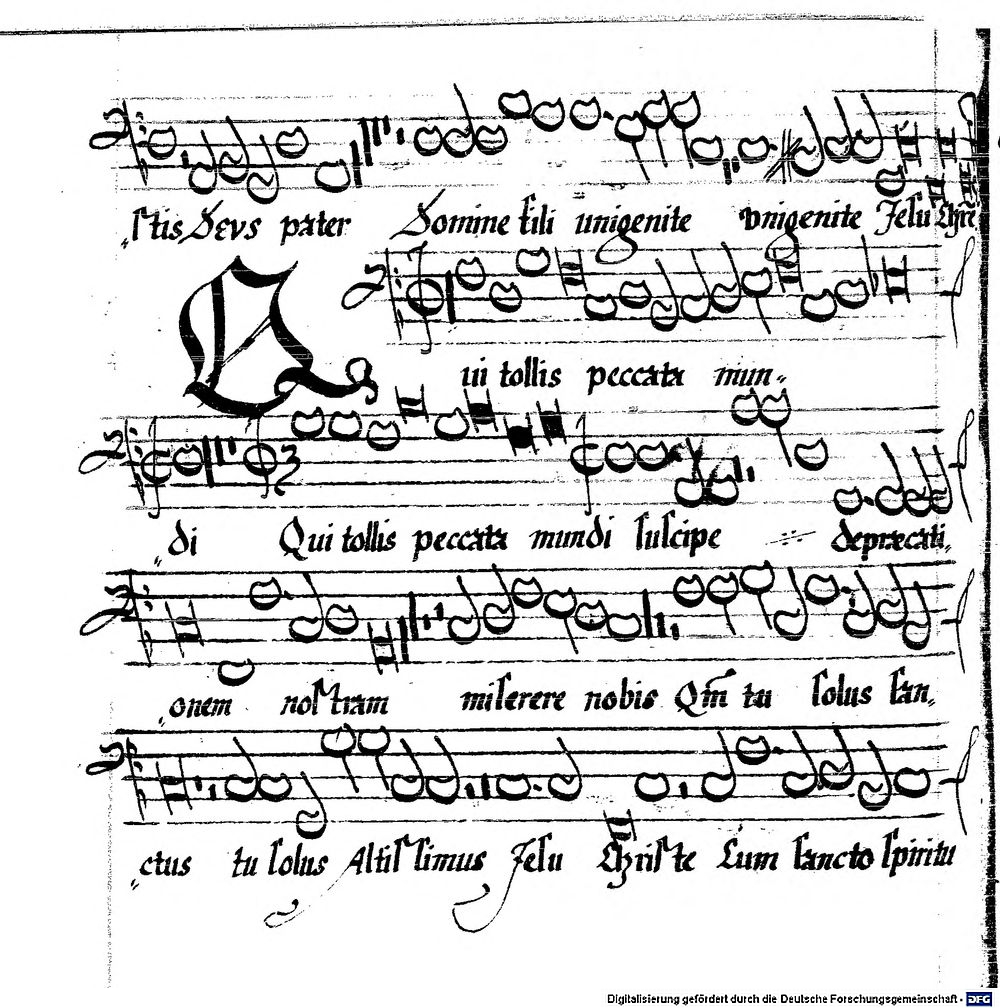 „stis Deus pater Domine fili unigenite vnigenite Jesu Chr̄e
Qui tollis peccata mun„
„di Qui tollis peccata mundi suscipe ·//· depræcati„
„onem nostram miserere nobis Qm̄ tu solus san„
„ctus tu solus Altissimus Jesu Christe Cum sancto spiritu
Digitalisierung gefördert durch die Deutsche Forschungsgemeinschaft - DFG